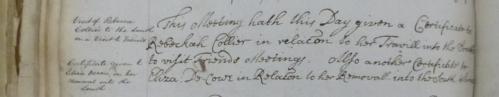 Visit of Rebecca
Collier to the South
on a Visit to Friends
This Meeting hath this Day given a Certificate to
Rebeckah Collier in relation to her Travill into the
to visit Friends Meetings. Also another Certificate to
Eliza. De Cow in Relation to her Removall into the South
Certificate given to
Eliza on her
removal into the
South